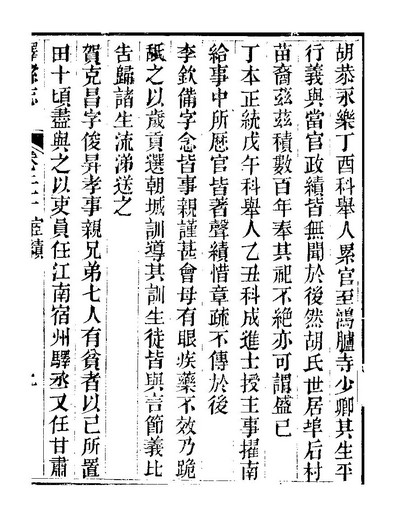 胡恭永樂丁酉科舉人累官至鴻臚寺少卿其生平
行義與當官政績皆無聞於後然胡氏世居埠后村
苗裔茲茲積數百年奉其祀不絶亦可謂盛已
丁本正統戊午科舉人乙丑科成進士授主事擢南
給事中所歷官皆著聲績惜章疏不傳於後
李欽備字念皆事親謹甚會母有眼疾藥不效乃跪
舐之以歲貢選朝城訓導其訓生徒皆與言節義比
告歸諸生流涕送之
賀克昌字俊昇孝事親兄弟七人有貧者以己所置
田十頃盡與之以吏員任江南宿州驛丞又任甘肅
志 宦績 九